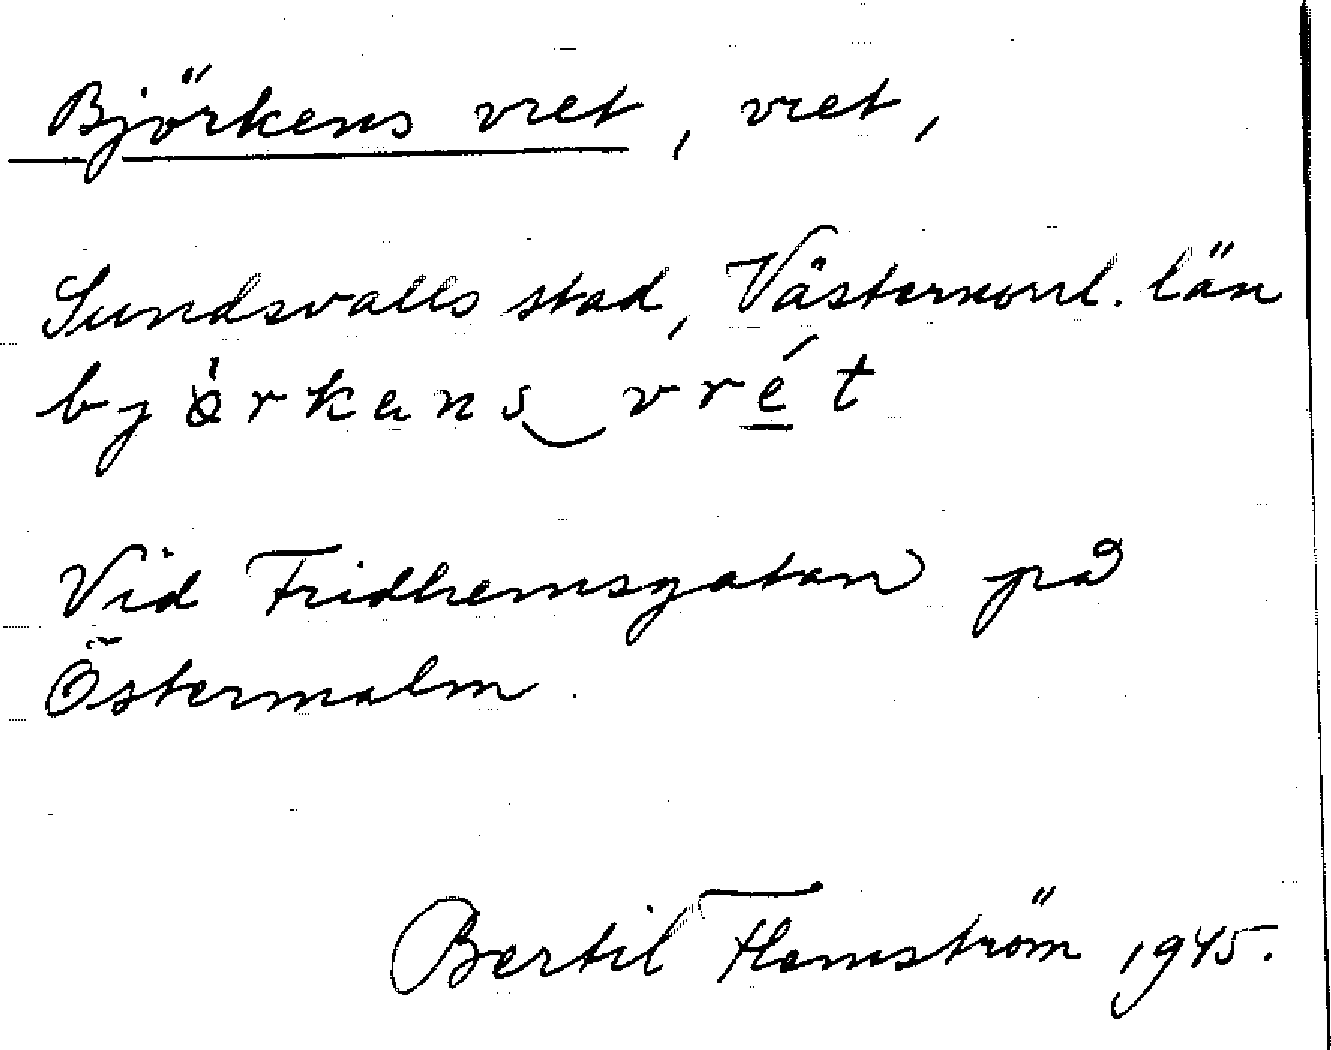 Björkens vret, vret,
Sundsvalls stad, Västernorrl. län
byȯ̀rkens‿vré̲t
Vid Fridhemsgatan på
Östermalm.
Bertil Flemström 1945.